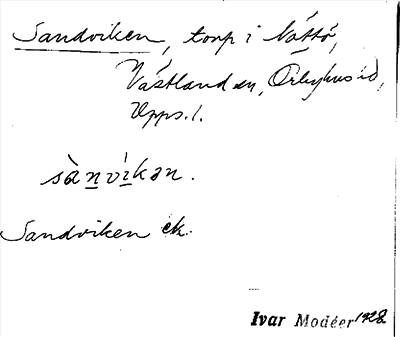 Sandviken, torp i Våttö,
Västland sn, Örbyhus hd,
Upps. l.
sànvíkən.
Sandviken ek.
Ivar Modéer 1928